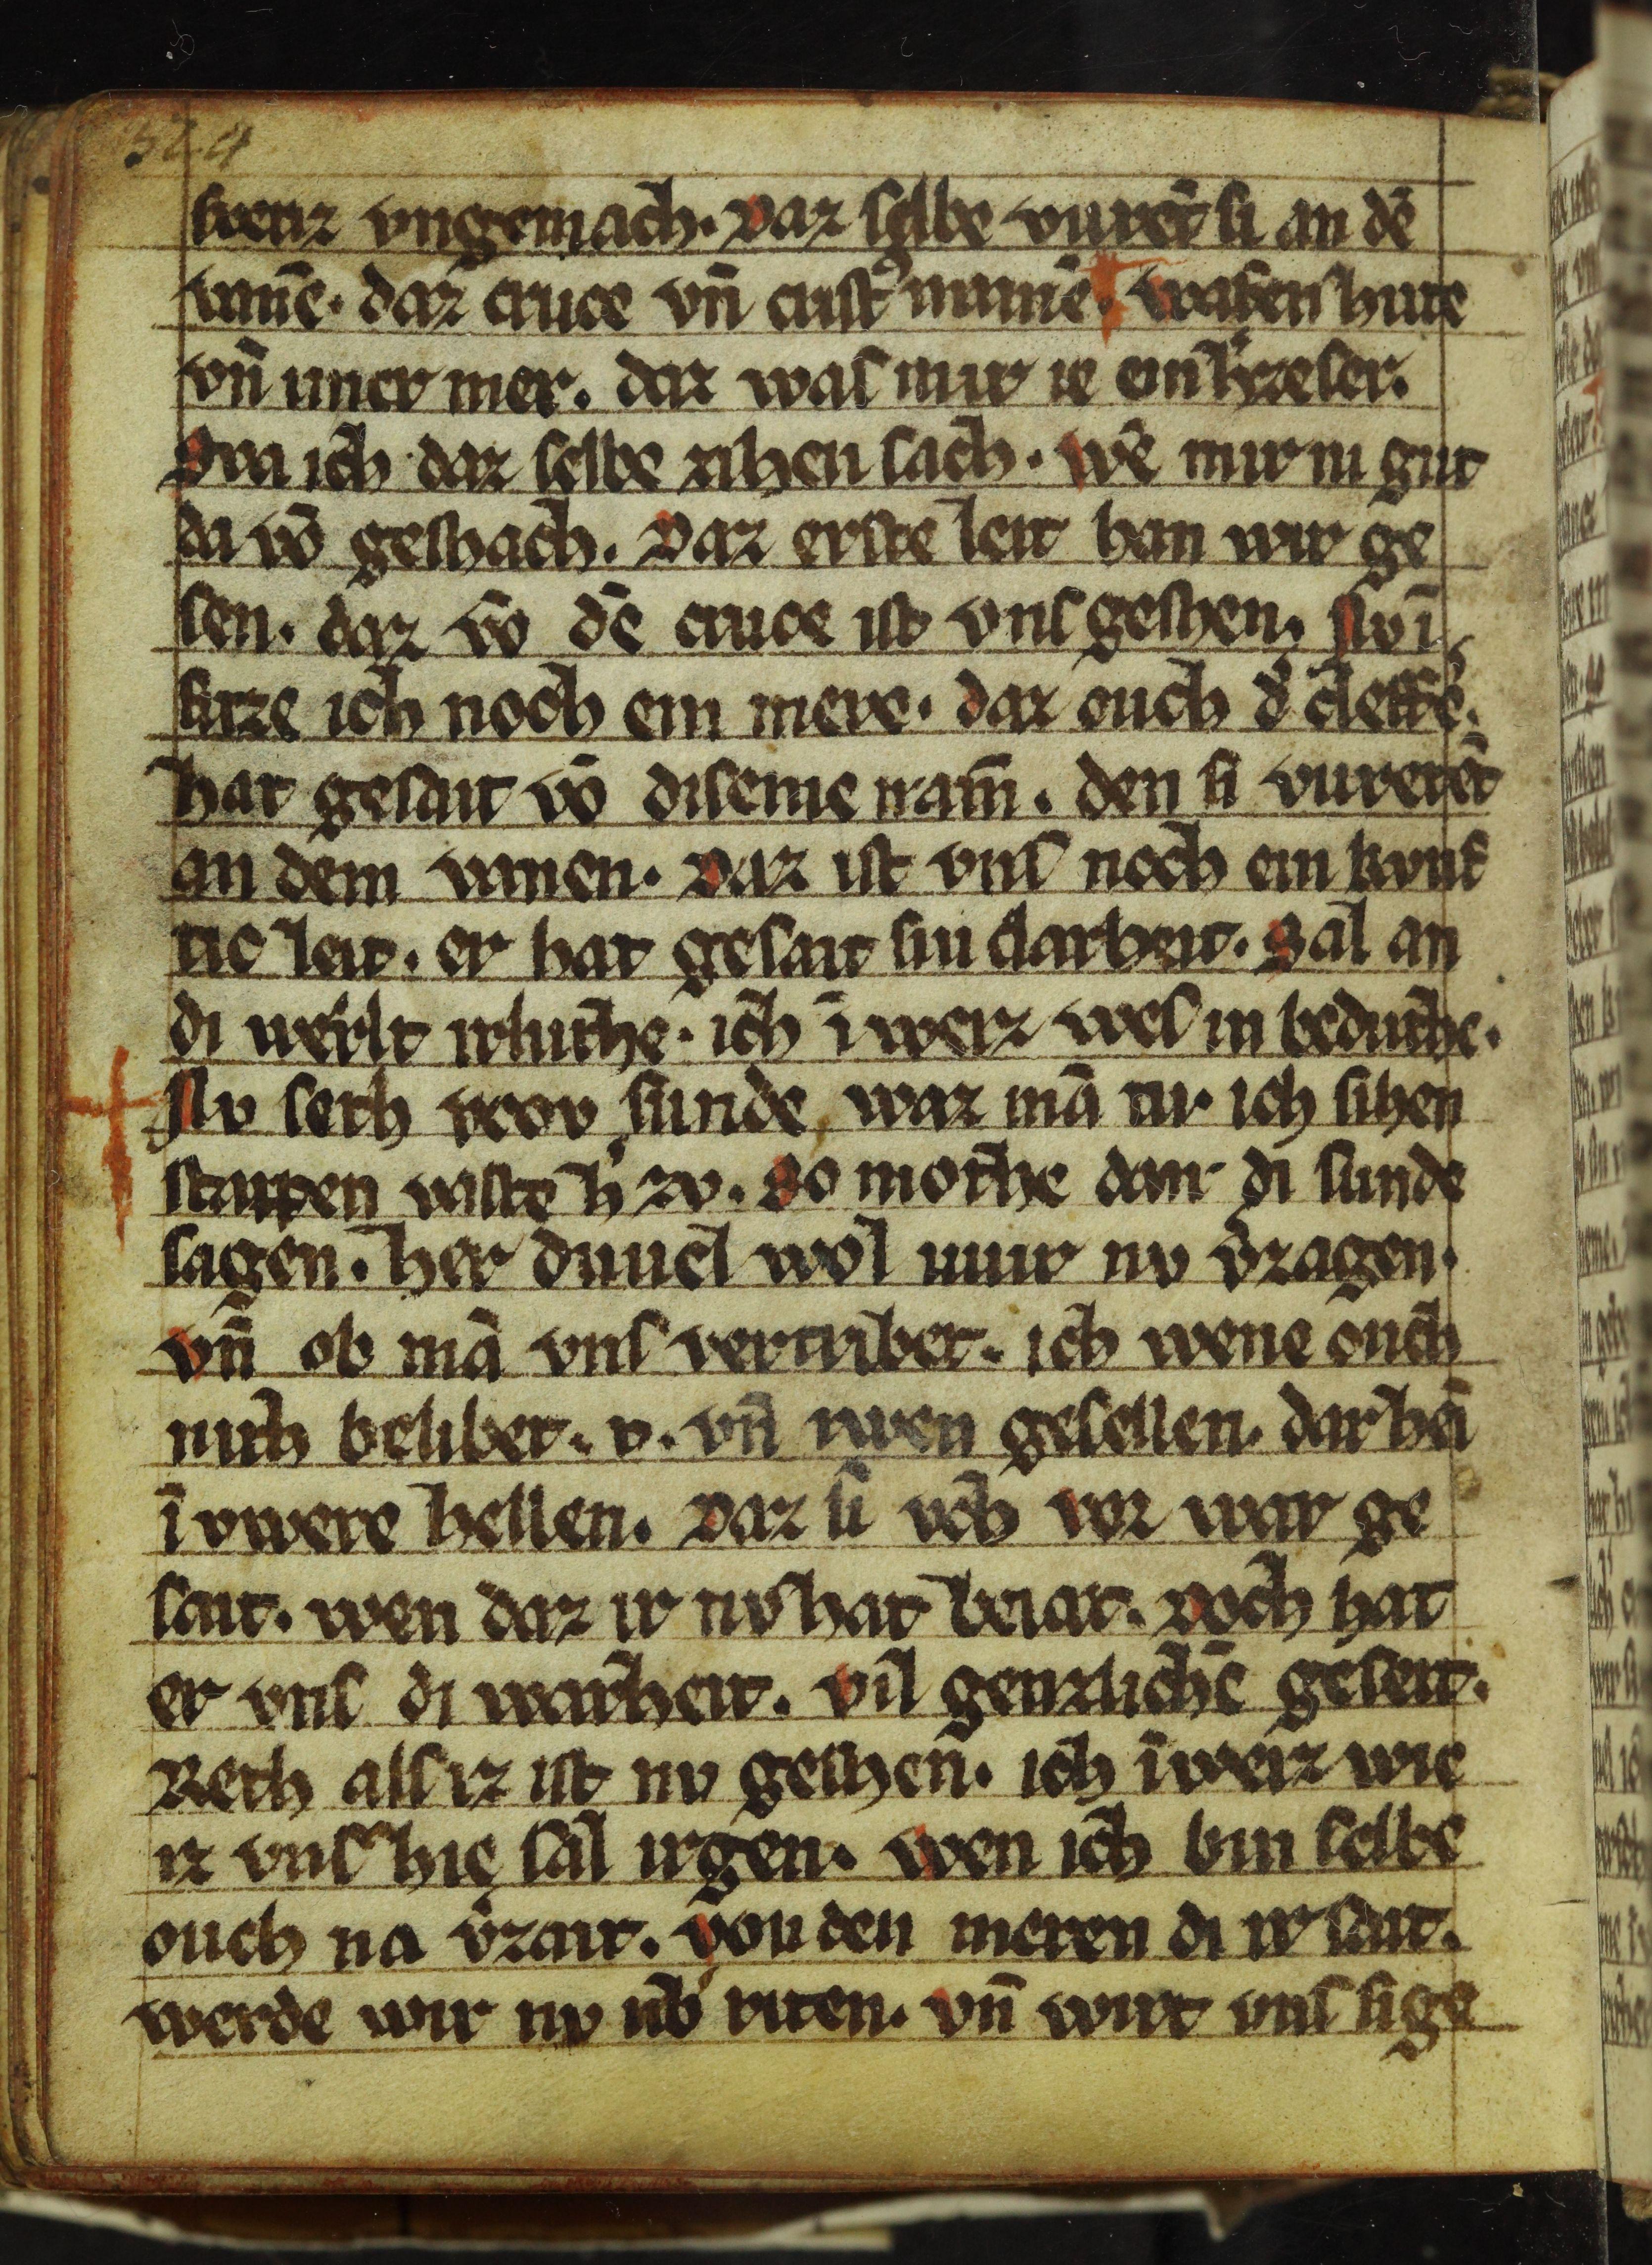 324
swenz vngemach. Daz selbe vurēt si an dē
vanē. daz cruce vn̄ crist᾽ minnē. wafen hute
vn̄ imer mer. daz was mir ie ein h᾽zeser.
Swa ich daz selbe zihen sach. wē mir ni gut
da vō geshach. Daz erste leit han wir ge
sen. daz vō dē cruce ist vns geshen. Nv ī
sitze ich noch ein mere. daz ouch d᾽ cleffe᾽.
hat gesait vō diseme man̄. den si vurerēt
an dem vanen. Daz ist vns noch ein kvnf
tic leit. er hat gesait sin clarheit. Sal an
di werlt irluthe. ich ī weiz wes in beduthe.
Nv seth vrov sunde waz mā tu. ich sihen
stapfen vaste h᾽ zv. So mothe dan di sunde
sagen. her duuel wol mir nv v᾽zagen.
vn̄ ob mā vns vertribet. ich wene ouch
nith belibet. v. vn̄ iwen gesellen. dar hēī
ī vwere hellen. Daz si vch vor war ge
sait. wen daz ir nv hat beiat. Doch hat
er vns di warheit. vil genzlichē geseit.
Reth als iz ist nv geshen. ich ī weiz wie
iz vns hie sal irgen. wen ich bin selbe
ouch na v᾽zait. von den meren di ir sait.
werde wir nv ub᾽ riten. vn̄ wirt vns sige